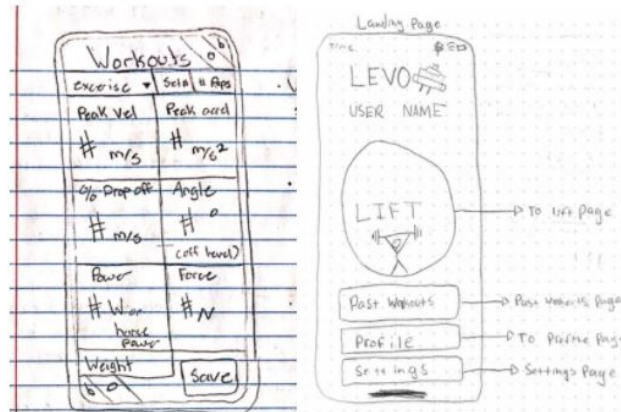 Workouts
excerise ▾ Set# # Reps
Peak Vel Peak accel
# m/s # m/s²
% Drop off Angle
# m/s # °
(off level)
Power Force
# W or # N
horse
power
Weight
Save
Landing Page
Time
LEVO
USER NAME
LIFT
To Lift Page
Past Workouts
Past Workouts Page
Profile
To Profile Page
Settings
Settings Page